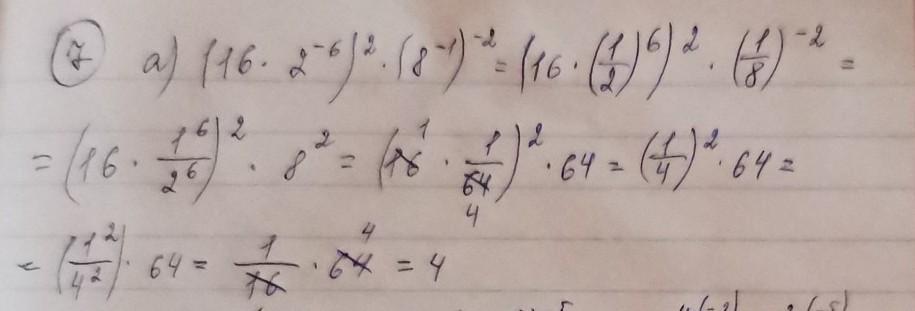 7 а) (16 · 2⁻⁶)² · (8⁻¹)⁻² = (16 · (1/2)⁶)² · (1/8)⁻² =
= (16 · 1⁶/2⁶)² · 8² = (16 1 · 1/64 4)² · 64 = (1/4)² · 64 =
= (1²/4²) · 64 = 1/16 · 64 4 = 4